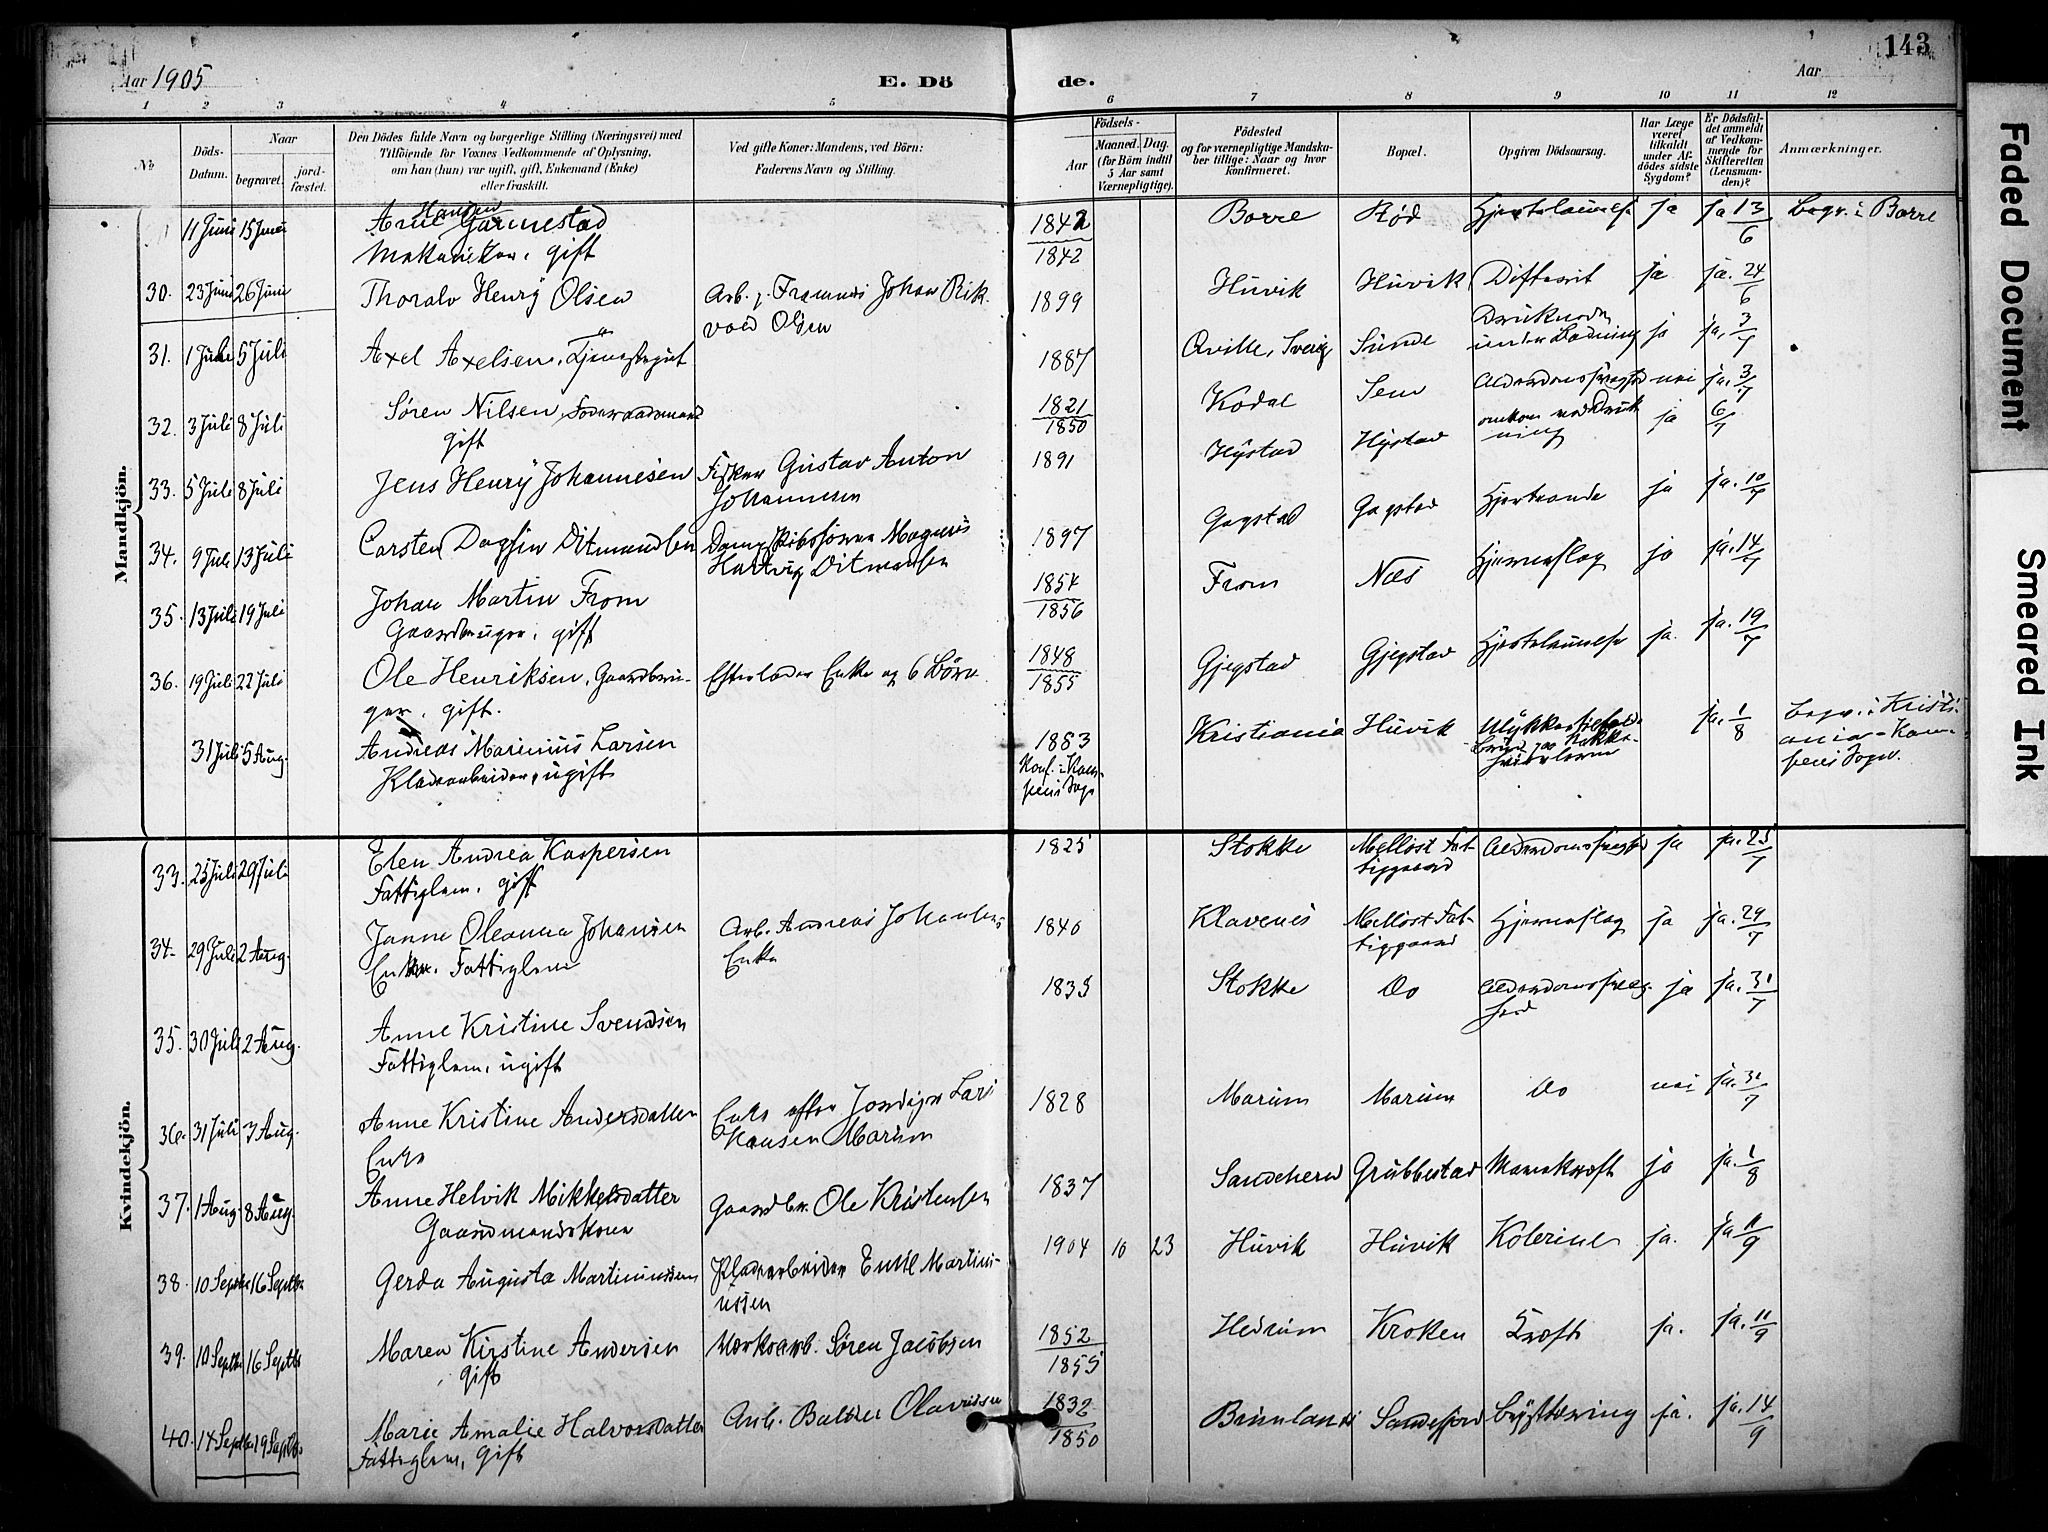 143
Aar 1905
E. Dö
de.
Aar
1 2 3 4 5 6 7 8 9 10 11 12
No
Döds-Datum.
Naar
begravet.
jord-fæstet.
Den Dödes fulde Navn og borgerlige Stilling (Næringsvei) med
Tilföiende for Voxnes Vedkommende af Oplysning,
om han (hun) var ugift, gift, Enkemand (Enke)
eller fraskilt.
Ved gifte Koner: Mandens, ved Börn:
Faderens Navn og Stilling.
Födsels-
Aar
Maaned. Dag.
(for Börn indtil
5 Aar samt
Værnepligtige).
Födested
og for værnepligtige Mandska-
ber tillige: Naar og hvor
konfirmeret.
Bopæl.
Opgiven Dödsaarsag.
Har Læge
været
tilkaldt
under Af-
dödes sidste
Sygdom?
Er Dödsfal-
det anmeldt
af Vedkom-
mende for
Skifteretten
(Lensman-
den)?
Anmærkninger.
Mandkjön.
11 Juni 15 Juni Arne Hansen Garmestad 1842 Borre Rød Hjertelammelse ja ja 13/6 begr. i Borre
Mekaniker, gift 1842
30. 23 Juni 26 Juni Thoralv Henry Olsen Arb. p. Framnes Johan Rik- 1899 Huvik Huvik Difterit ja ja. 24/6
vold Olsen
31. 1 Juli 5 Juli Axel Axelsen, Tjenestegut 1887 Qville, Sverig Sunde Druknede under Badning ja ja. 3/7
32. 3 Juli 8 Juli Søren Nilsen, Føderaadsmand 1821 Kodal Sem Alderdomssvaghed nei ja. 3/7
gift 1850
33. 5 Juli 8 Juli Jens Henry Johannesen Fisker Gustav Anton 1891 Hystad Hystad omkom ved Drukning ja 6/7
Johannesen
34. 9 Juli 13 Juli Carsten Dagfin Ditmandsen Dampskibsfører Magnus 1897 Gogstad Gogstad Hjerteonde ja ja. 10/7
Hartvig Ditmansen
35. 13 Juli 19 Juli Johan Martin From 1854 From Næs Hjerneslag ja ja. 14/7
Gaardbruger, gift 1856
36. 19 Juli 22 Juli Ole Henriksen, Gaardbru- Efterlader Enke og 6 Børn 1848 Gjegstad Gjegstad Hjertelammelse ja. ja. 19/7
ger, gift. 1855
31 Juli 5 Aug. Andreas Marinius Larsen 1883 Kristiania Huvik ja. 1/8 begr. i Kristi-
ania - Kam-
pens Sogn.
Klædearbeider, ugift Konf. i Kam-
pens Sogn
Kvindekjön.
33. 25 Juli 29 Juli Elen Andrea Kaspersen 1825 Stokke Melløst Fat-
tiggaard Alderdomssvaghed ja ja. 25/7
Fattiglem, gift
34. 29 Juli 2 Aug. Janne Oleanna Johansen Arb. Andreas Johansens 1840 Klavenes Melløst Fat-
tiggaard Hjerneslag ja ja. 29/7
Enke. Fattiglem Enke
35. 30 Juli 2 Aug. Anne Kristine Svendsen 1835 Stokke Do Alderdomssvag-
hed ja ja. 31/7
Fattiglem, ugift
36. 31 Juli 3 Aug. Anne Kristine Andersdatter Enke efter Jordeier Lars 1828 Marum Marum Do nei ja. 31/7
Enke Hansen Marum
37. 1 Aug. 8 Aug. Anne Helvik Mikkelsdatter Gaardbr. Ole Kristensen 1837 Sandeherred Grubbestad Mavekræft ja ja. 1/8
Gaardmandskone
38. 10 Septbr 16 Septbr Gerda Augusta Martinussen Klædearbeider Emil Martin- 1904 10 23 Huvik Huvik Kolerine ja. ja 11/9
ussen
39. 10 Septbr 16 Septbr Maren Kirstine Andersen Værksarb. Søren Jacobsen 1852 Hedrum Kroken Kræft ja. ja. 11/9
gift 1855
40. 14 Septbr 19 Septbr Marie Amalie Halvorsdatter Arb. Baltzer Olavessen 1832 Brunlanes Sandefjord ja. ja. 14/9
Fattiglem, gift 1850
Faded Document
Smeared Ink